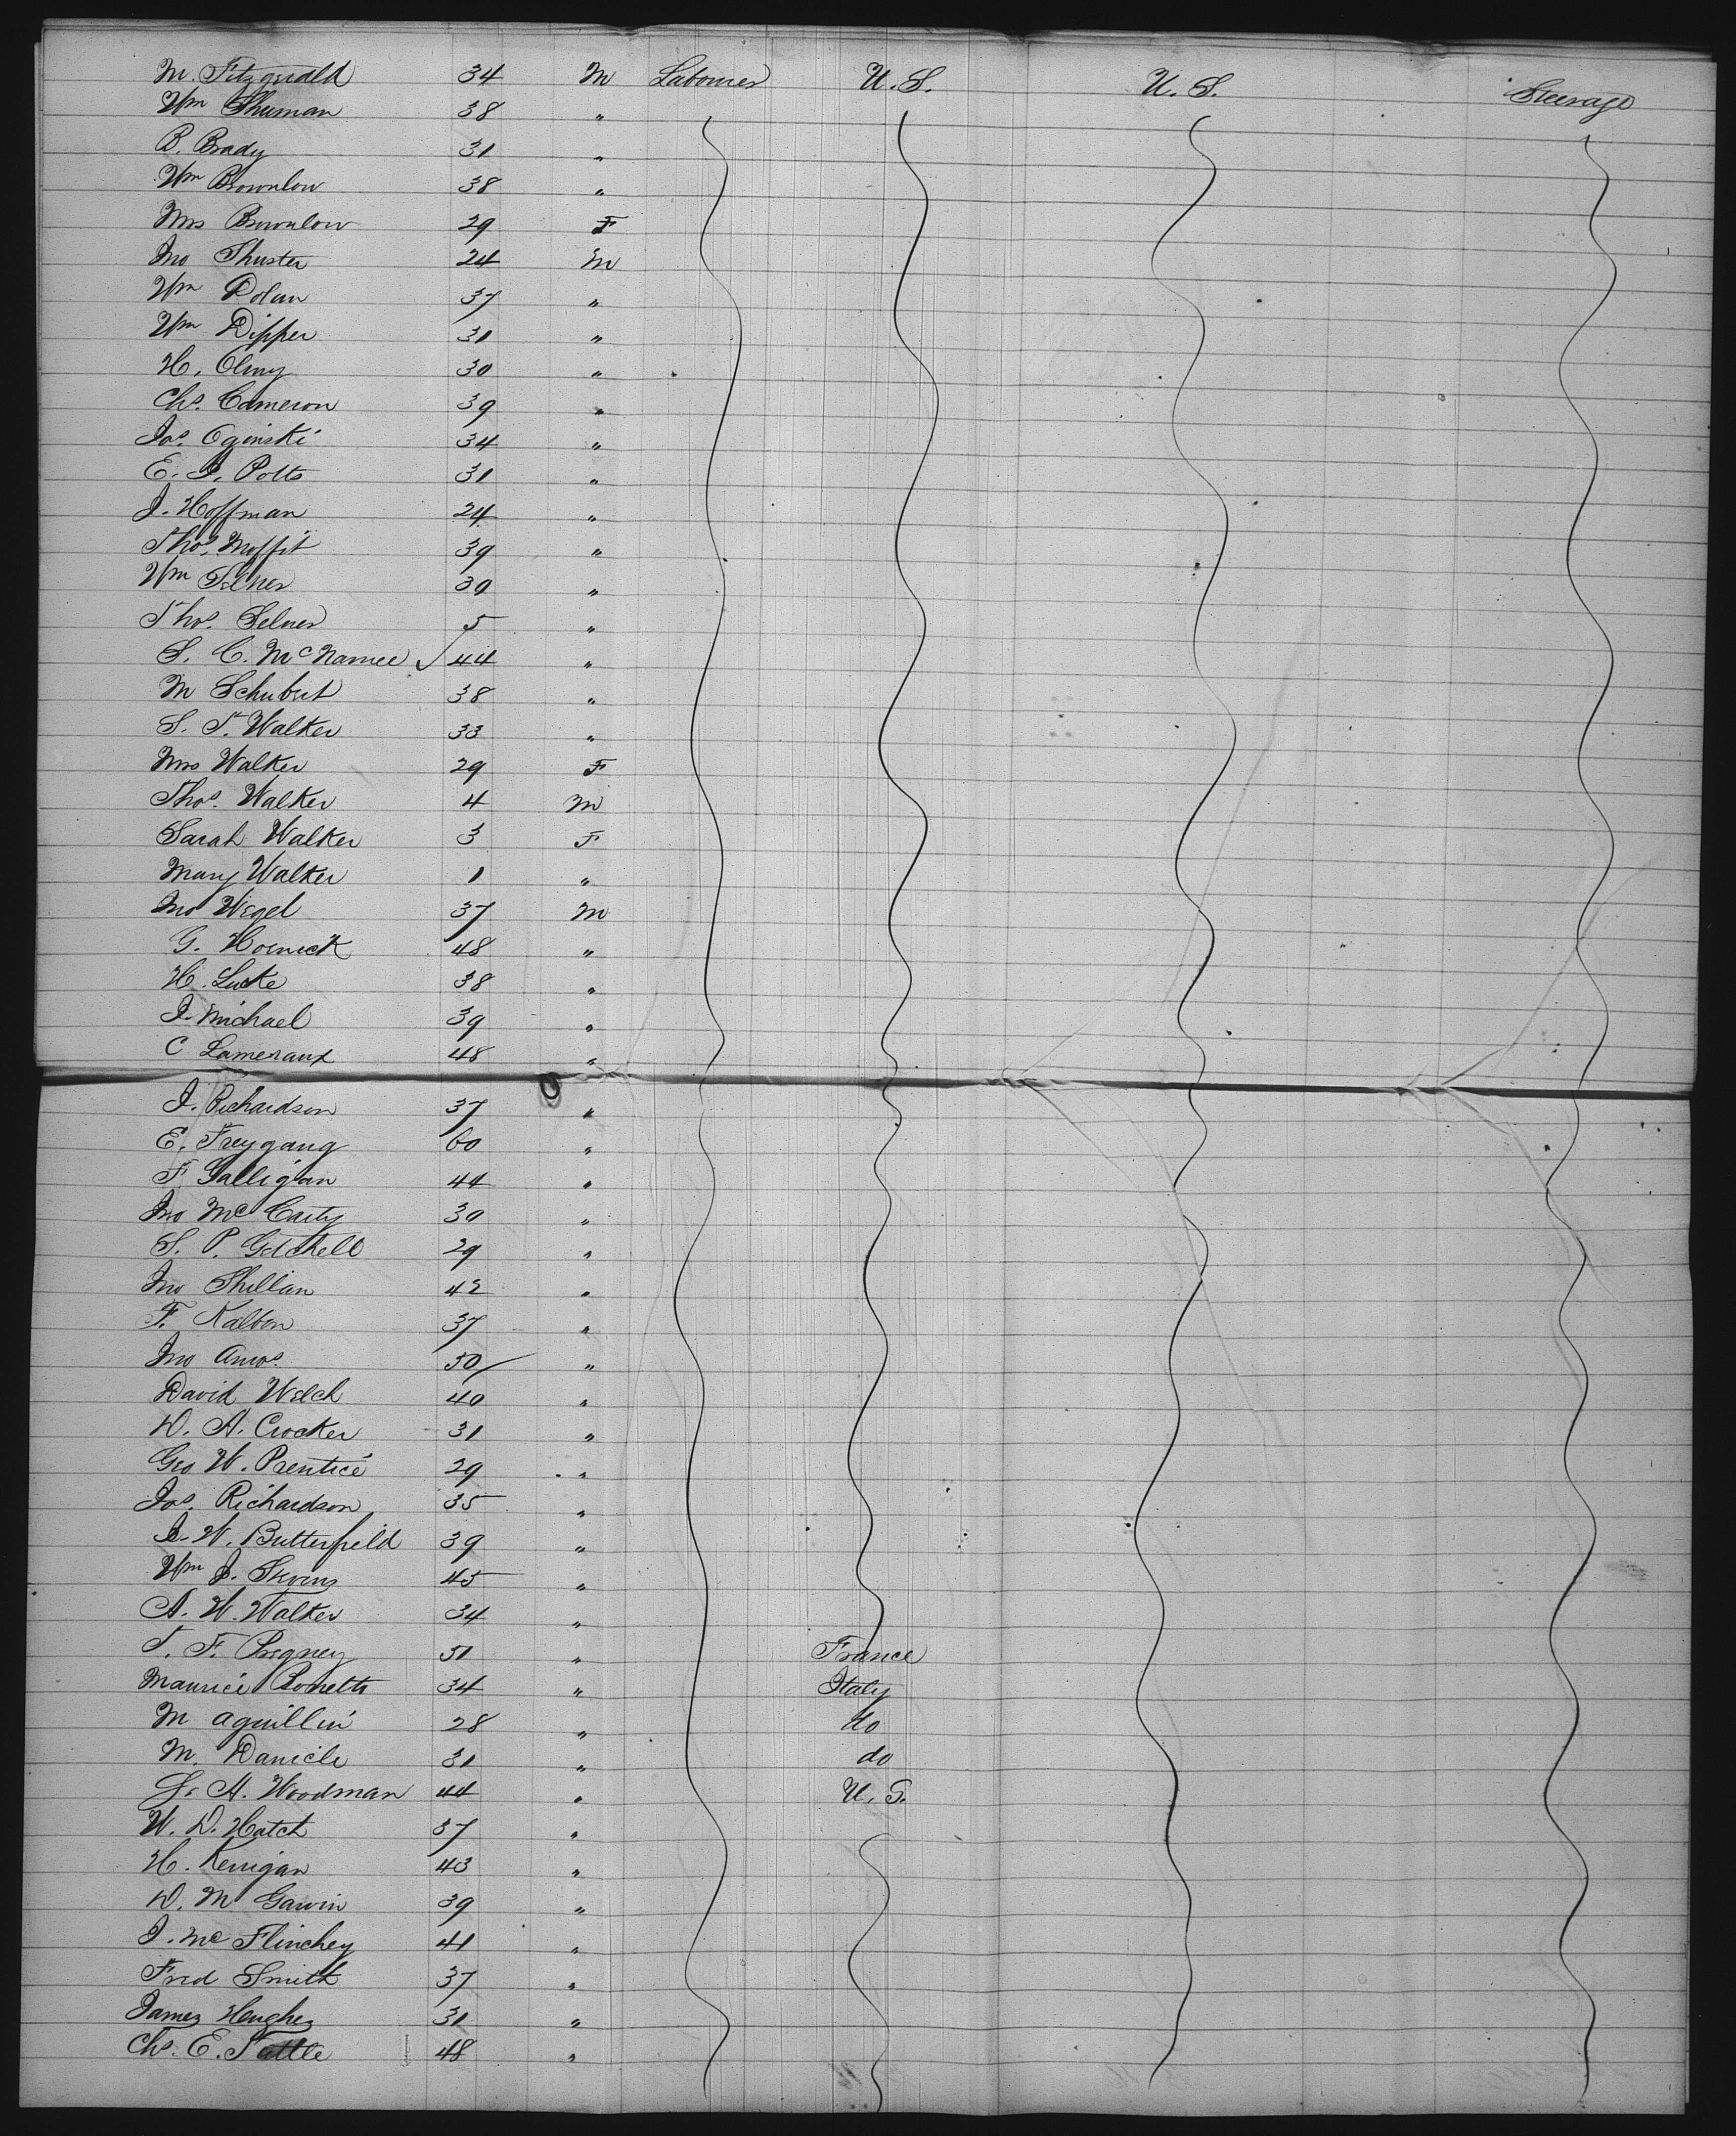 M. Fitzgerald 34 M Labourer U. S. U. S. Steerage
Wm Shuman 38 "
B. Brady 31 "
Wm Brownlow 38 "
Mrs Brownlow 29 F
Jno Shuster 24 M
Wm Dolan 37 "
Wm Dipper 31 "
H. Olmy 30 "
Chs. Cameron 39 "
Jos. Oginski 34 "
E. J. Potts 31 "
J. Hoffman 24 "
Thos. Moffit 39 "
Wm Selner 39 "
Thos. Selner 5 "
S. C. McNamee 44 "
M Schubert 38 "
S. T. Walker 33 "
Mrs Walker 29 F
Thos. Walker 4 M
Sarah Walker 3 F
Mary Walker 1 "
Jno Wegel 37 M
G. Hornick 48 "
H. Lucke 38 "
J. Michael 39 "
C Lameraux 48 "
J. Richardson 37 "
E. Freygang 60 "
F. Galligan 44 "
Jno McCarty 30 "
S. P. Getchell 29 "
Jno Shellian 42 "
F. Kalben 37 "
Jno Amos. 50 "
David Welch 40 "
D. A. Crocker 31 "
Geo W. Prentice 29 "
Jos. Richardson 35 "
J. W. Butterfield 39 "
Wm J. Stevens 45 "
A. W. Walker 34 "
T. F. 51 " France
Maurice Bonetts 34 " Italy
M Aguillin 28 " do
M. Daniele 31 " do
S. A. Woodman 44 " U. S.
W. D. Hatch 37 "
H. Kerrigan 43 "
D. M Garvin 39 "
J. Mc Flinchey 41 "
Fred Smith 37 "
James Hughes 31 "
Chs. E. Tuttle 48 "